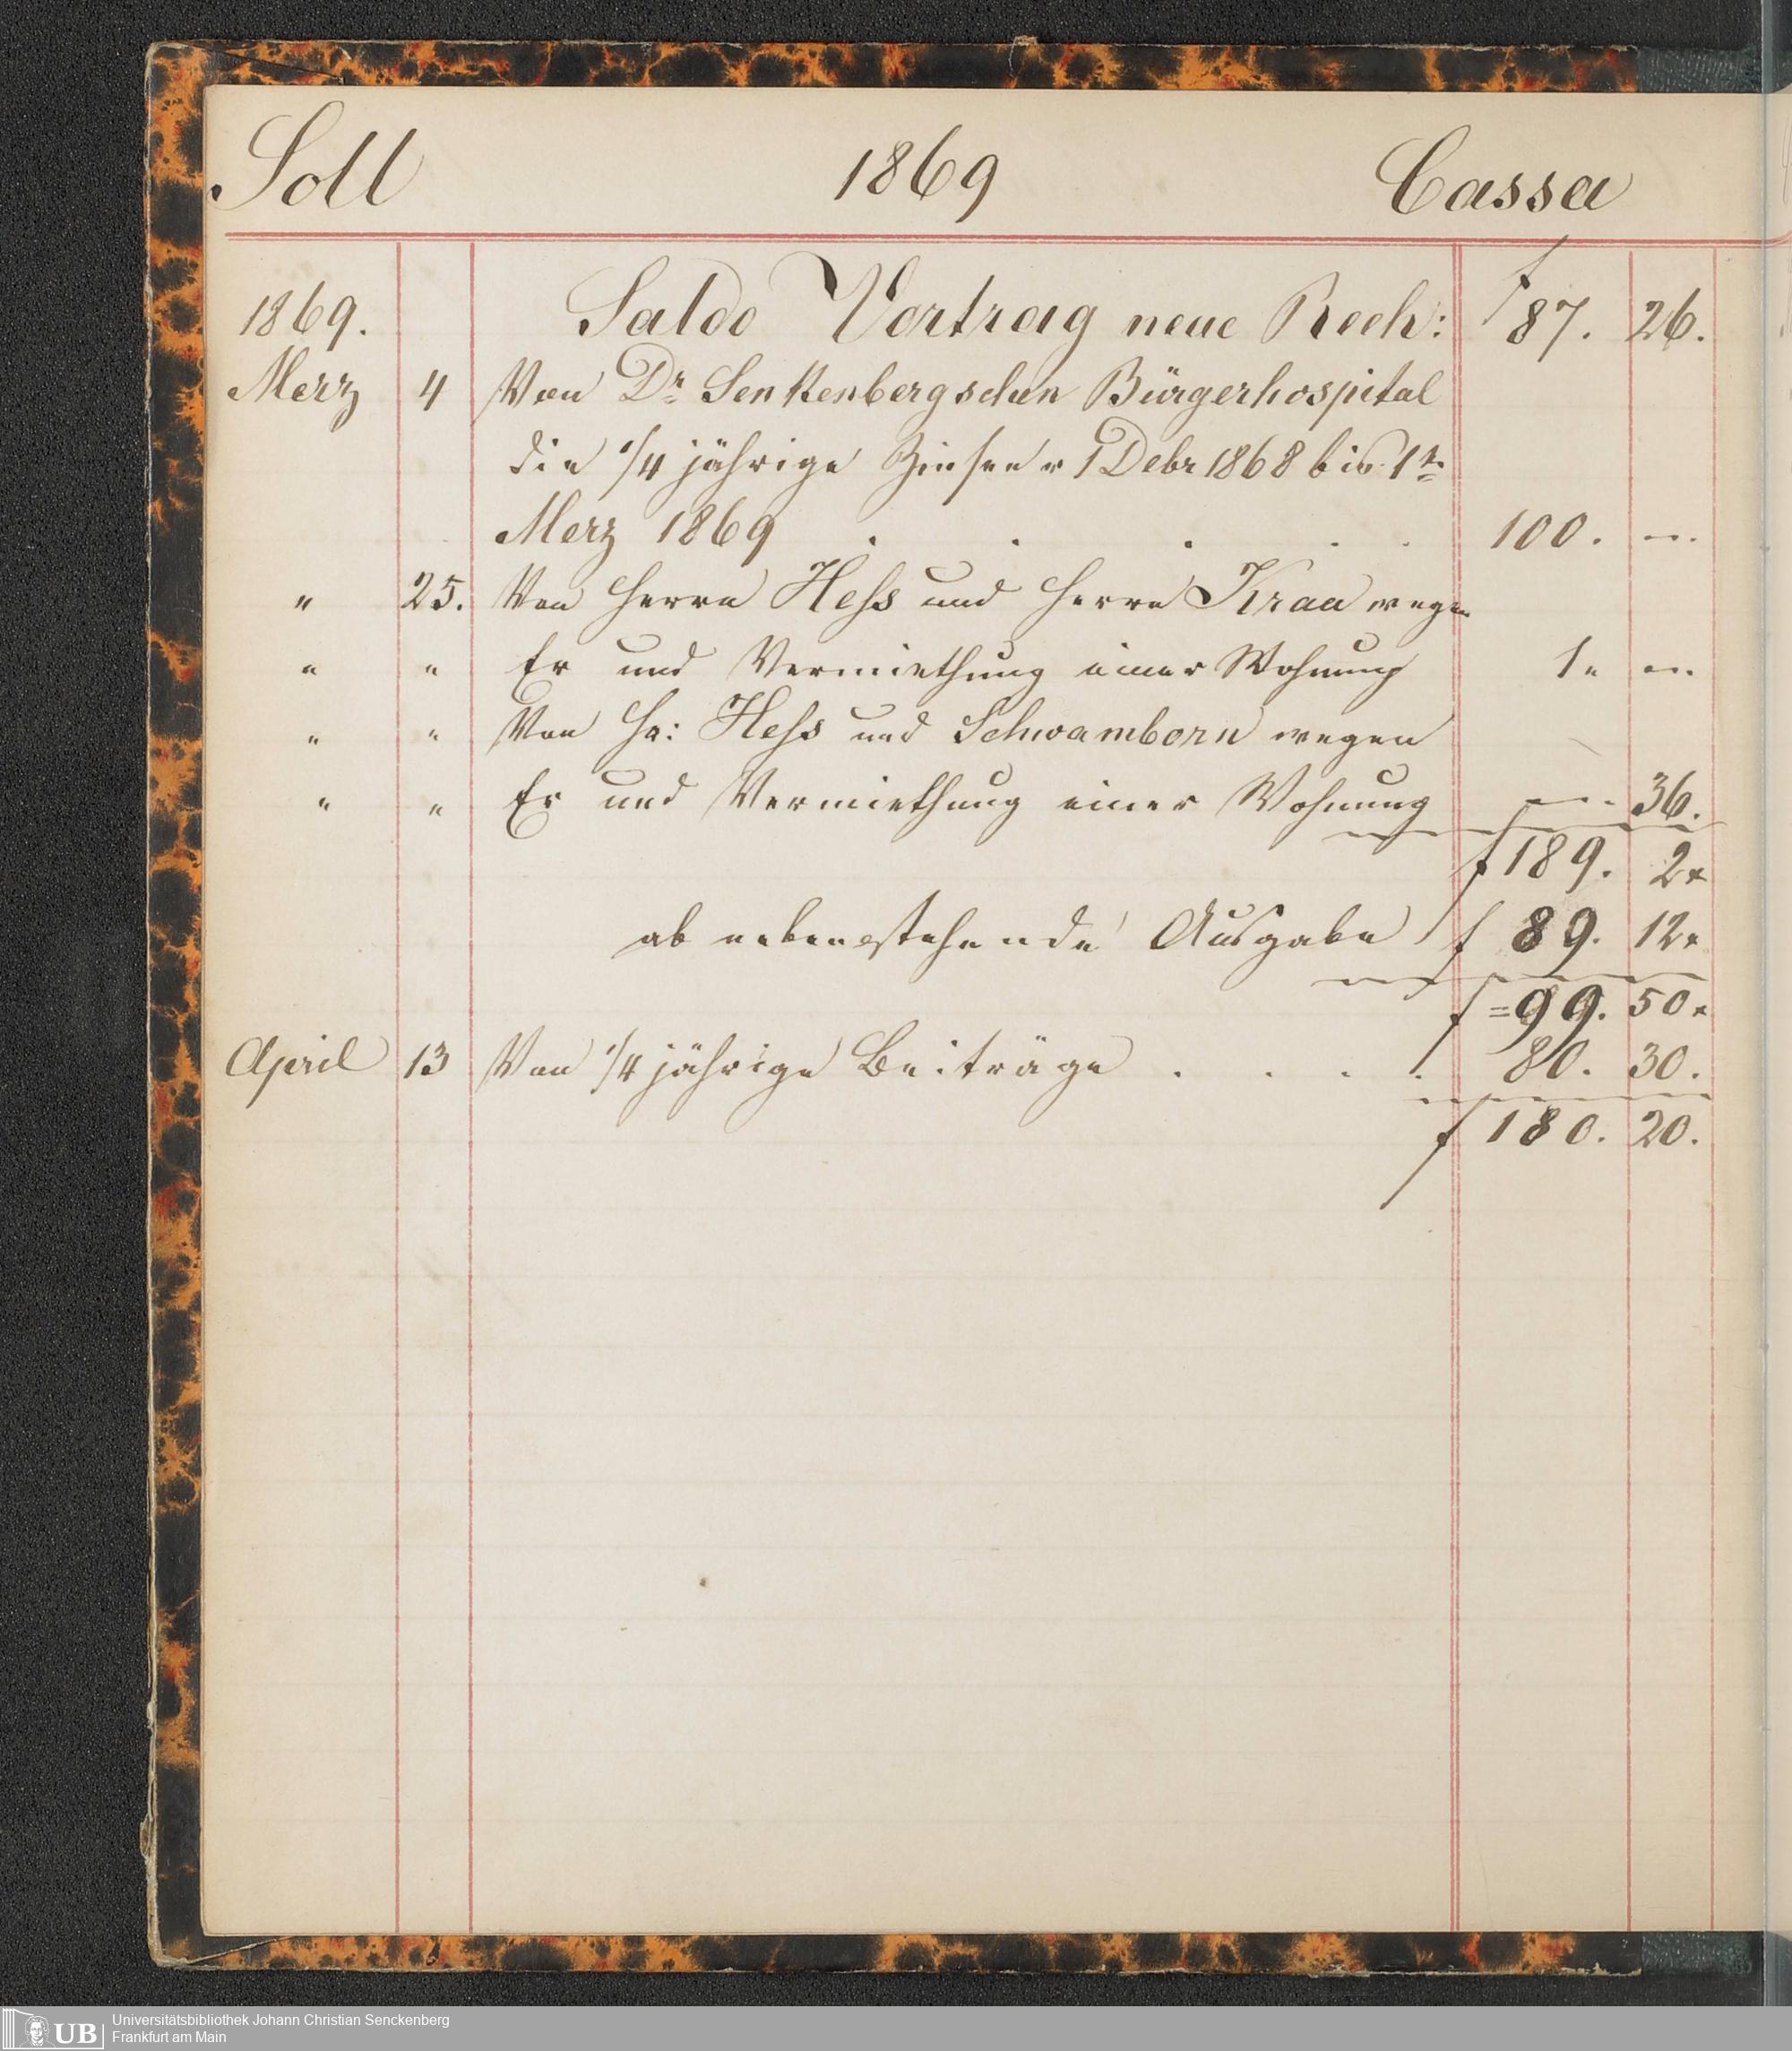 Soll 1869 Cassa
1869. Saldo Vortrag neue Rech: f 87. 26.
Merz 4 Von Dr Senkenbergschen Bürgerhospital
die 1/4 jährige Zinsen v 1 Debr 1868 bis 1t
Merz 1869 . . . . . 100. —.
" 25. Von Herrn Hess und Herrn Kraa wegen
" " Er und Vermiethung einer Wohnung 1. —.
" " Von Hr: Hess und Schwamborn wegen
" " Er und Vermiethung einer Wohnung —. 36.
f 189. 2.
ab nebenstehende Ausgabe f 89. 12.
f = 99. 50.
April 13 Von 1/4 jährige Beiträge . . . . 80. 30.
f 180. 20.
UB Universitätsbibliothek Johann Christian Senckenberg
Frankfurt am Main